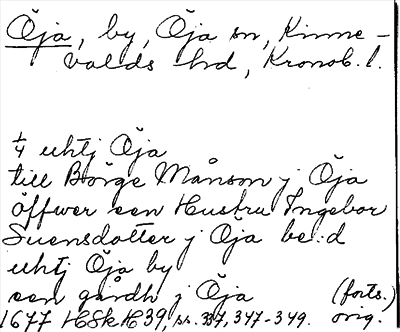 Öja, by, Öja sn, Kinne-
valds hd, Kronob. l.
1/4 uhtj Öja
till Börge Månson j Öja
öffwer een Hustru Ingebor
Suensdotter j Öja be:d
uhtj Öja by
een gårdh j Öja (forts.)
1677 HSkH39, sn. 337, 347-349. orig.